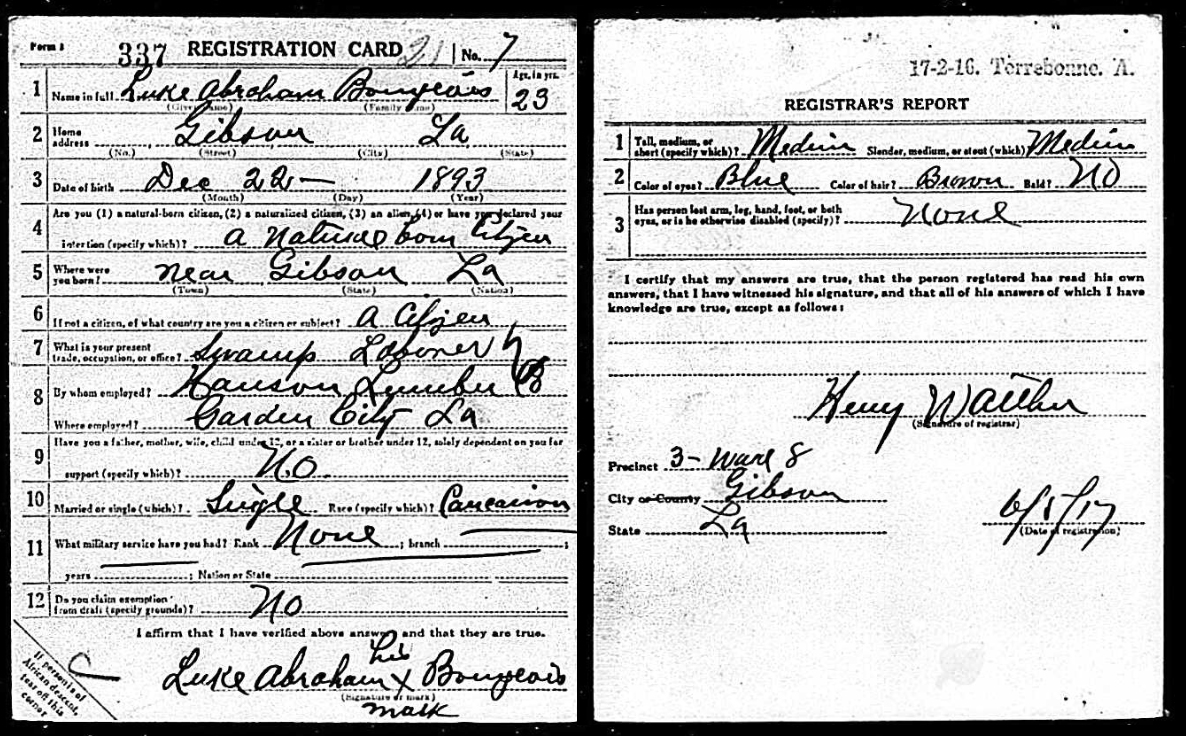 Form 1 337 REGISTRATION CARD 21 No. 7
1 Name in full Luke Abraham Bourgeois Age, in yrs. 23
(Given name) (Family name)
2 Home address Gibson La
(No.) (Street) (City) (State)
3 Date of birth Dec 22 — 1893
(Month) (Day) (Year)
4 Are you (1) a natural-born citizen, (2) a naturalized citizen, (3) an alien, (4) or have you declared your
intention (specify which)? a Natural born Citizen
5 Where were you born? near Gibson La
(Town) (State) (Nation)
6 If not a citizen, of what country are you a citizen or subject? A Citizen
7 What is your present trade, occupation, or office? Swamp Laborer
8 By whom employed? Hanson Lumber Co
Where employed? Garden City La
9 Have you a father, mother, wife, child under 12, or a sister or brother under 12, solely dependent on you for
support (specify which)? No
10 Married or single (which)? Single Race (specify which)? Caucasion
11 What military service have you had? Rank None ; branch ;
years ; Nation or State
12 Do you claim exemption from draft (specify grounds)? No
I affirm that I have verified above answers and that they are true.
his
Luke Abraham x Bourgeois
(Signature or mark)
mark
If person is of
African descent,
tear off this
corner
17-2-16. Terrebonne. A.
REGISTRAR'S REPORT
1 Tall, medium, or short (specify which)? Medium Slender, medium, or stout (which)? Medium
2 Color of eyes? Blue Color of hair? Brown Bald? NO
3 Has person lost arm, leg, hand, foot, or both eyes, or is he otherwise disabled (specify)? None
I certify that my answers are true, that the person registered has read his own
answers, that I have witnessed his signature, and that all of his answers of which I have
knowledge are true, except as follows:
Henry
(Signature of registrar)
Precinct 3- Ward 8
City or County Gibson
State La
6/5/17
(Date of registration)